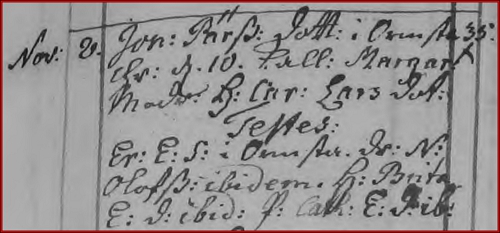 Nov: 2. Jon: Pärß: dott: i Ormsta 35:
Chr: d. 10. Kall: Margar
Modr: H: Car: Lars dot:
Testes:
Er: E: S: i Ormsta. dr: N:
Olofß: ibidem. H: Brita
E: D: ibid: P: Cath: E: D: ib: